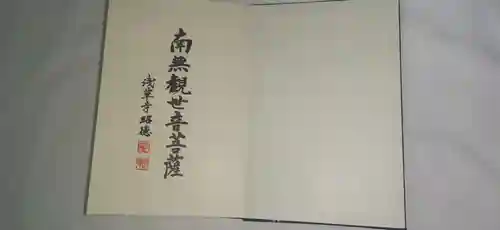 南無觀世音菩薩
浅草寺 昭德